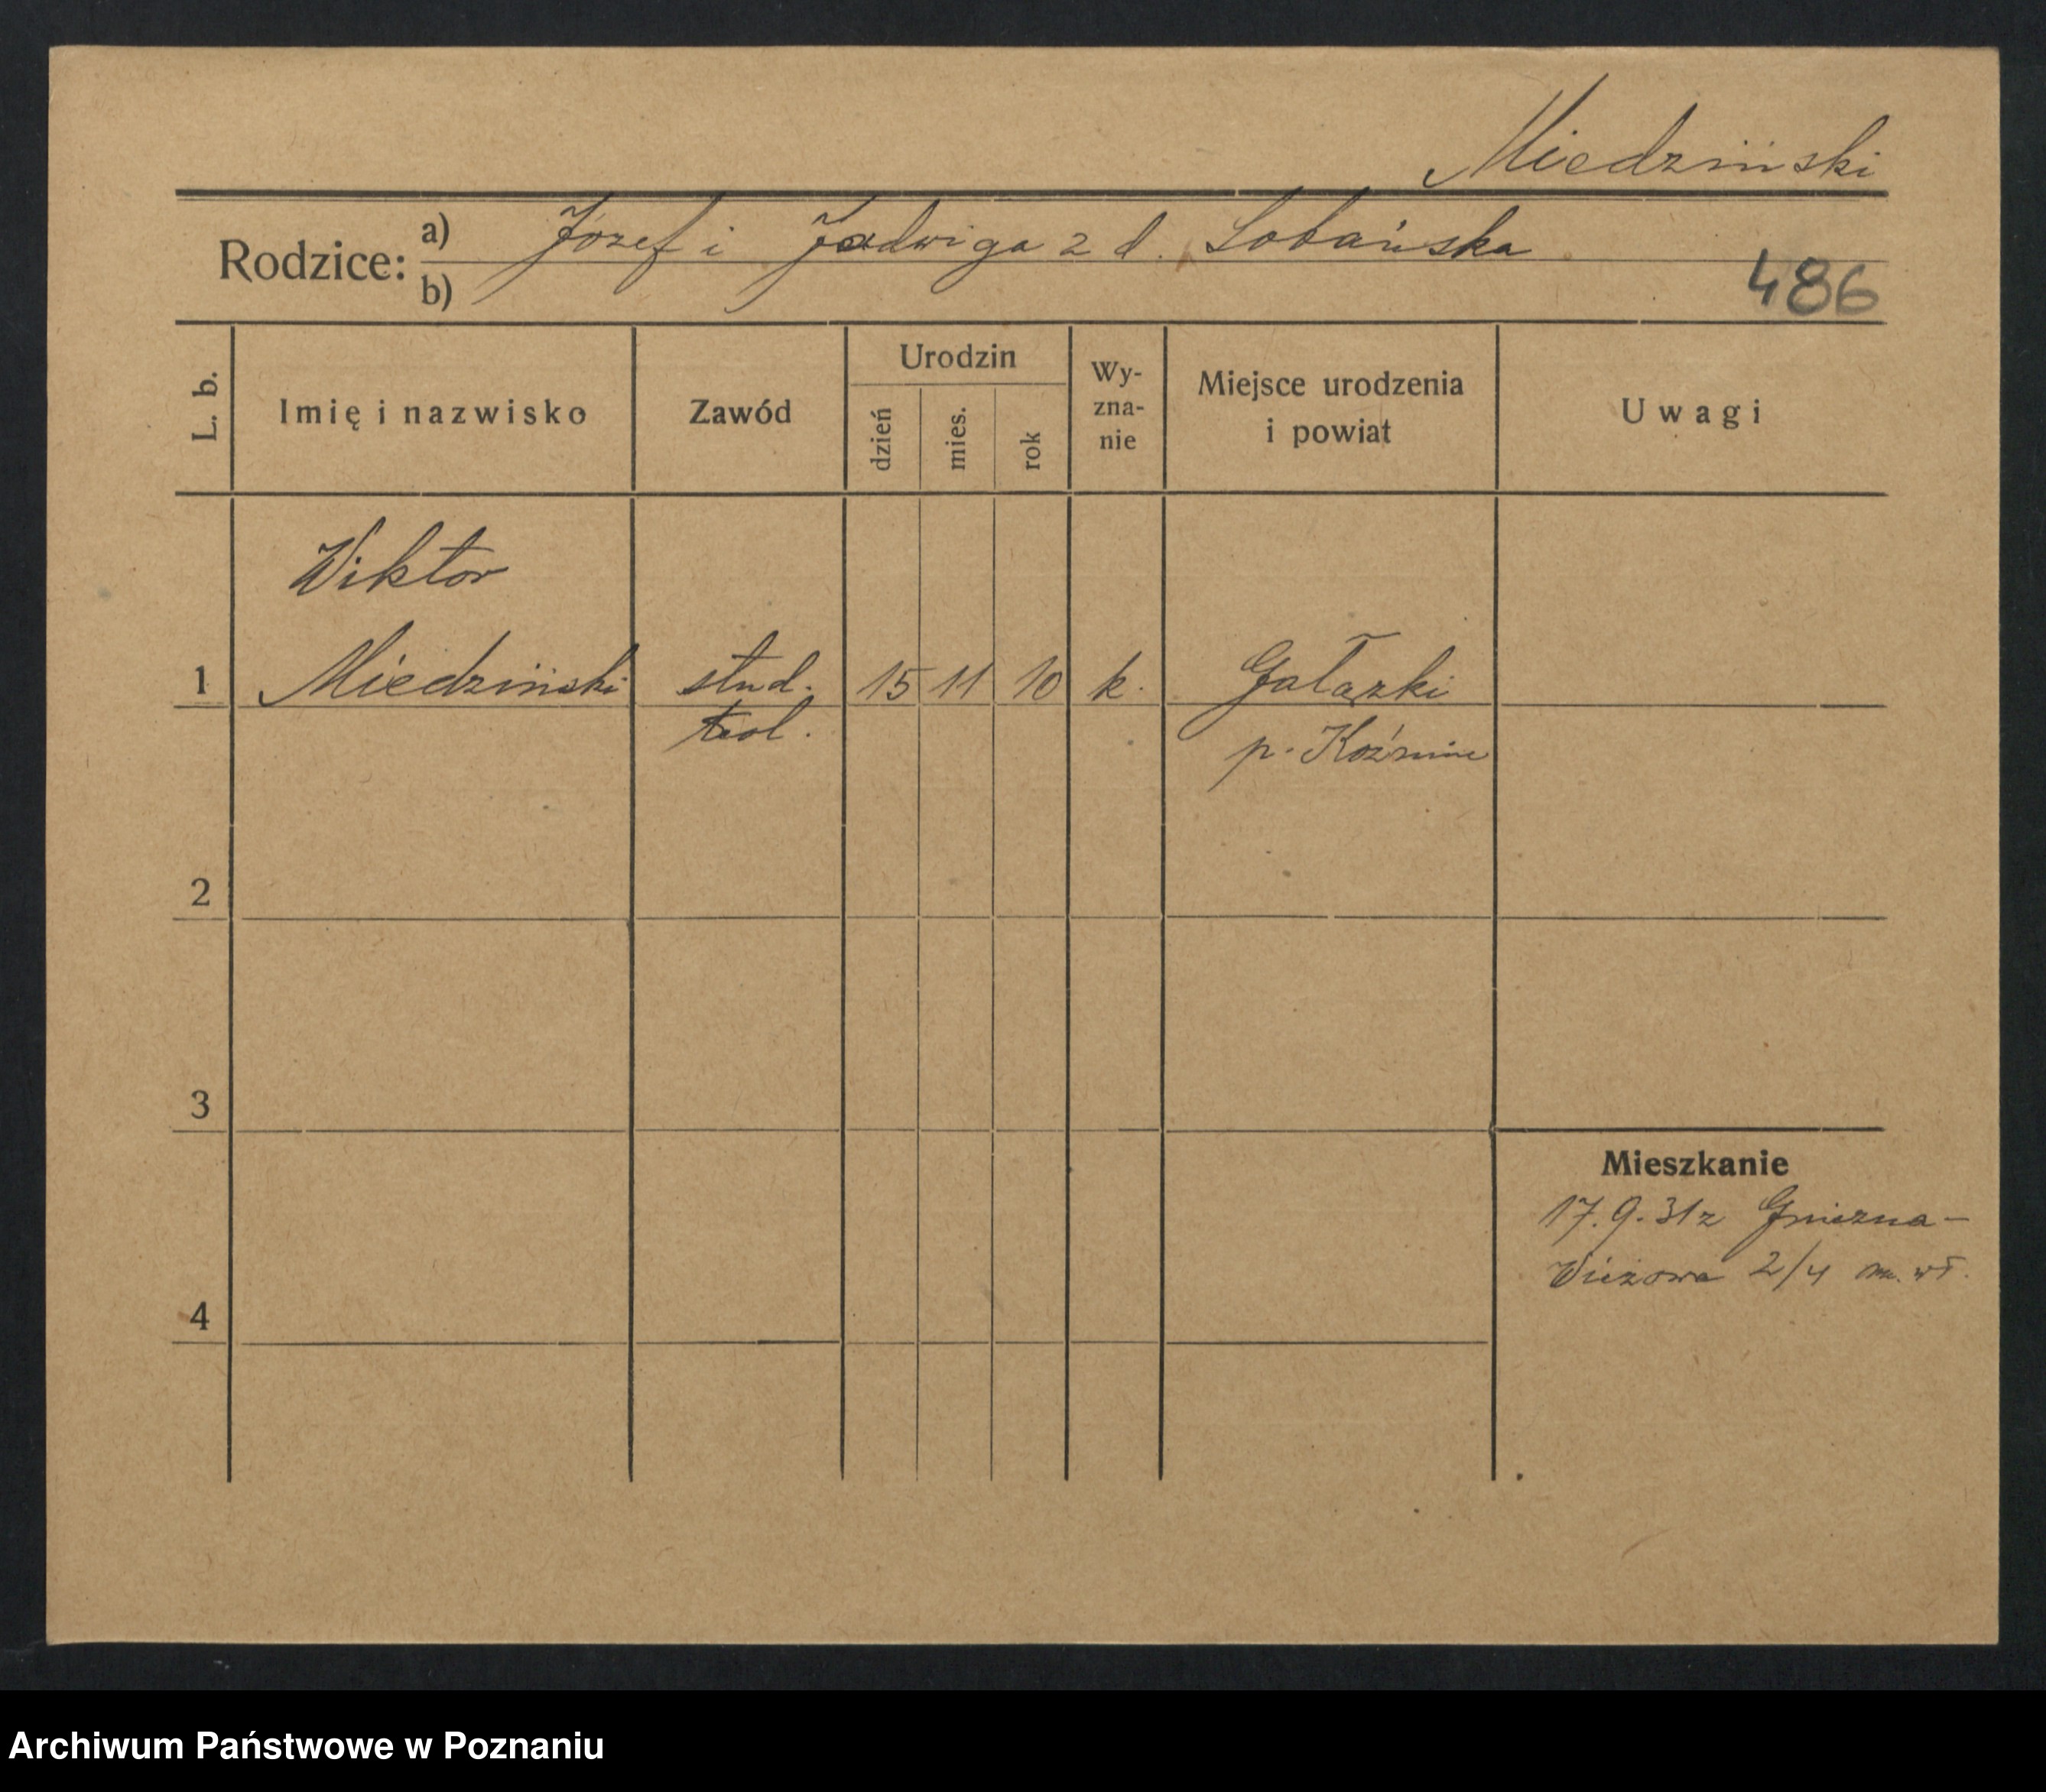 Miedziński
Rodzice: a) Józef i Jadwiga z d. Łobańska
b)
486
L. b.
Imię i nazwisko
Zawód
Urodzin
dzień
mies.
rok
Wy-
zna-
nie
Miejsce urodzenia
i powiat
Uwagi
Wiktor
1 Miedziński stud. 15 11 10 k. Gałązki
teol. p. Koźmin
2
3
4
Mieszkanie
17.9.31 z Gniezna –
Wieżowa 2/4 m. wł.
Archiwum Państwowe w Poznaniu